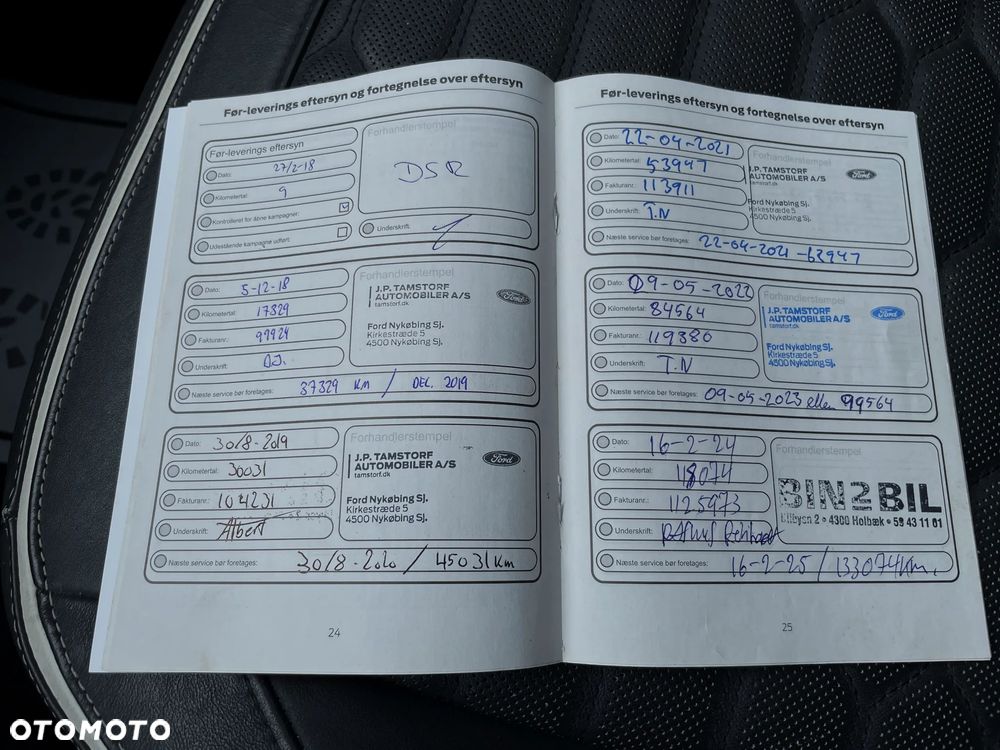 Før-leverings eftersyn og fortegnelse over eftersyn
Før-leverings eftersyn
Dato: 27/2-18
Kilometertal: 9
Kontrolleret for åbne kampagner:
Udestående kampagne udført:
Forhandlerstempel
DSR
Underskrift:
Dato: 5-12-18
Kilometertal: 17329
Fakturanr.: 99924
Underskrift:
Næste service bør foretages: 37329 KM / DEC. 2019
Forhandlerstempel
J.P. TAMSTORF
AUTOMOBILER A/S
tamstorf.dk
Ford
Ford Nykøbing Sj.
Kirkestræde 5
4500 Nykøbing Sj.
Dato: 30/8-2019
Kilometertal: 30031
Fakturanr.: 104231
Underskrift: Albert
Næste service bør foretages: 30/8-2020 / 45031 Km
Forhandlerstempel
J.P. TAMSTORF
AUTOMOBILER A/S
tamstorf.dk
Ford
Ford Nykøbing Sj.
Kirkestræde 5
4500 Nykøbing Sj.
24
Før-leverings eftersyn og fortegnelse over eftersyn
Dato: 22-04-2021
Kilometertal: 53947
Fakturanr.: 113911
Underskrift: T.N
Næste service bør foretages: 22-04-2021 - 63947
Forhandlerstempel
J.P. TAMSTORF
AUTOMOBILER A/S
tamstorf.dk
Ford
Ford Nykøbing Sj.
Kirkestræde 5
4500 Nykøbing Sj.
Dato: 09-05-2022
Kilometertal: 84564
Fakturanr.: 119380
Underskrift: T.N
Næste service bør foretages: 09-05-2023 eller 99564
Forhandlerstempel
J.P. TAMSTORF
AUTOMOBILER A/S
tamstorf.dk
Ford
Ford Nykøbing Sj.
Kirkestræde 5
4500 Nykøbing Sj.
Dato: 16-2-24
Kilometertal: 118074
Fakturanr.: 1125973
Underskrift:
Næste service bør foretages: 16-2-25 / 133074km.
Forhandlerstempel
BIN2BIL
2 • 4300 Holbæk • 59 43 11 01
25
OTOMOTO